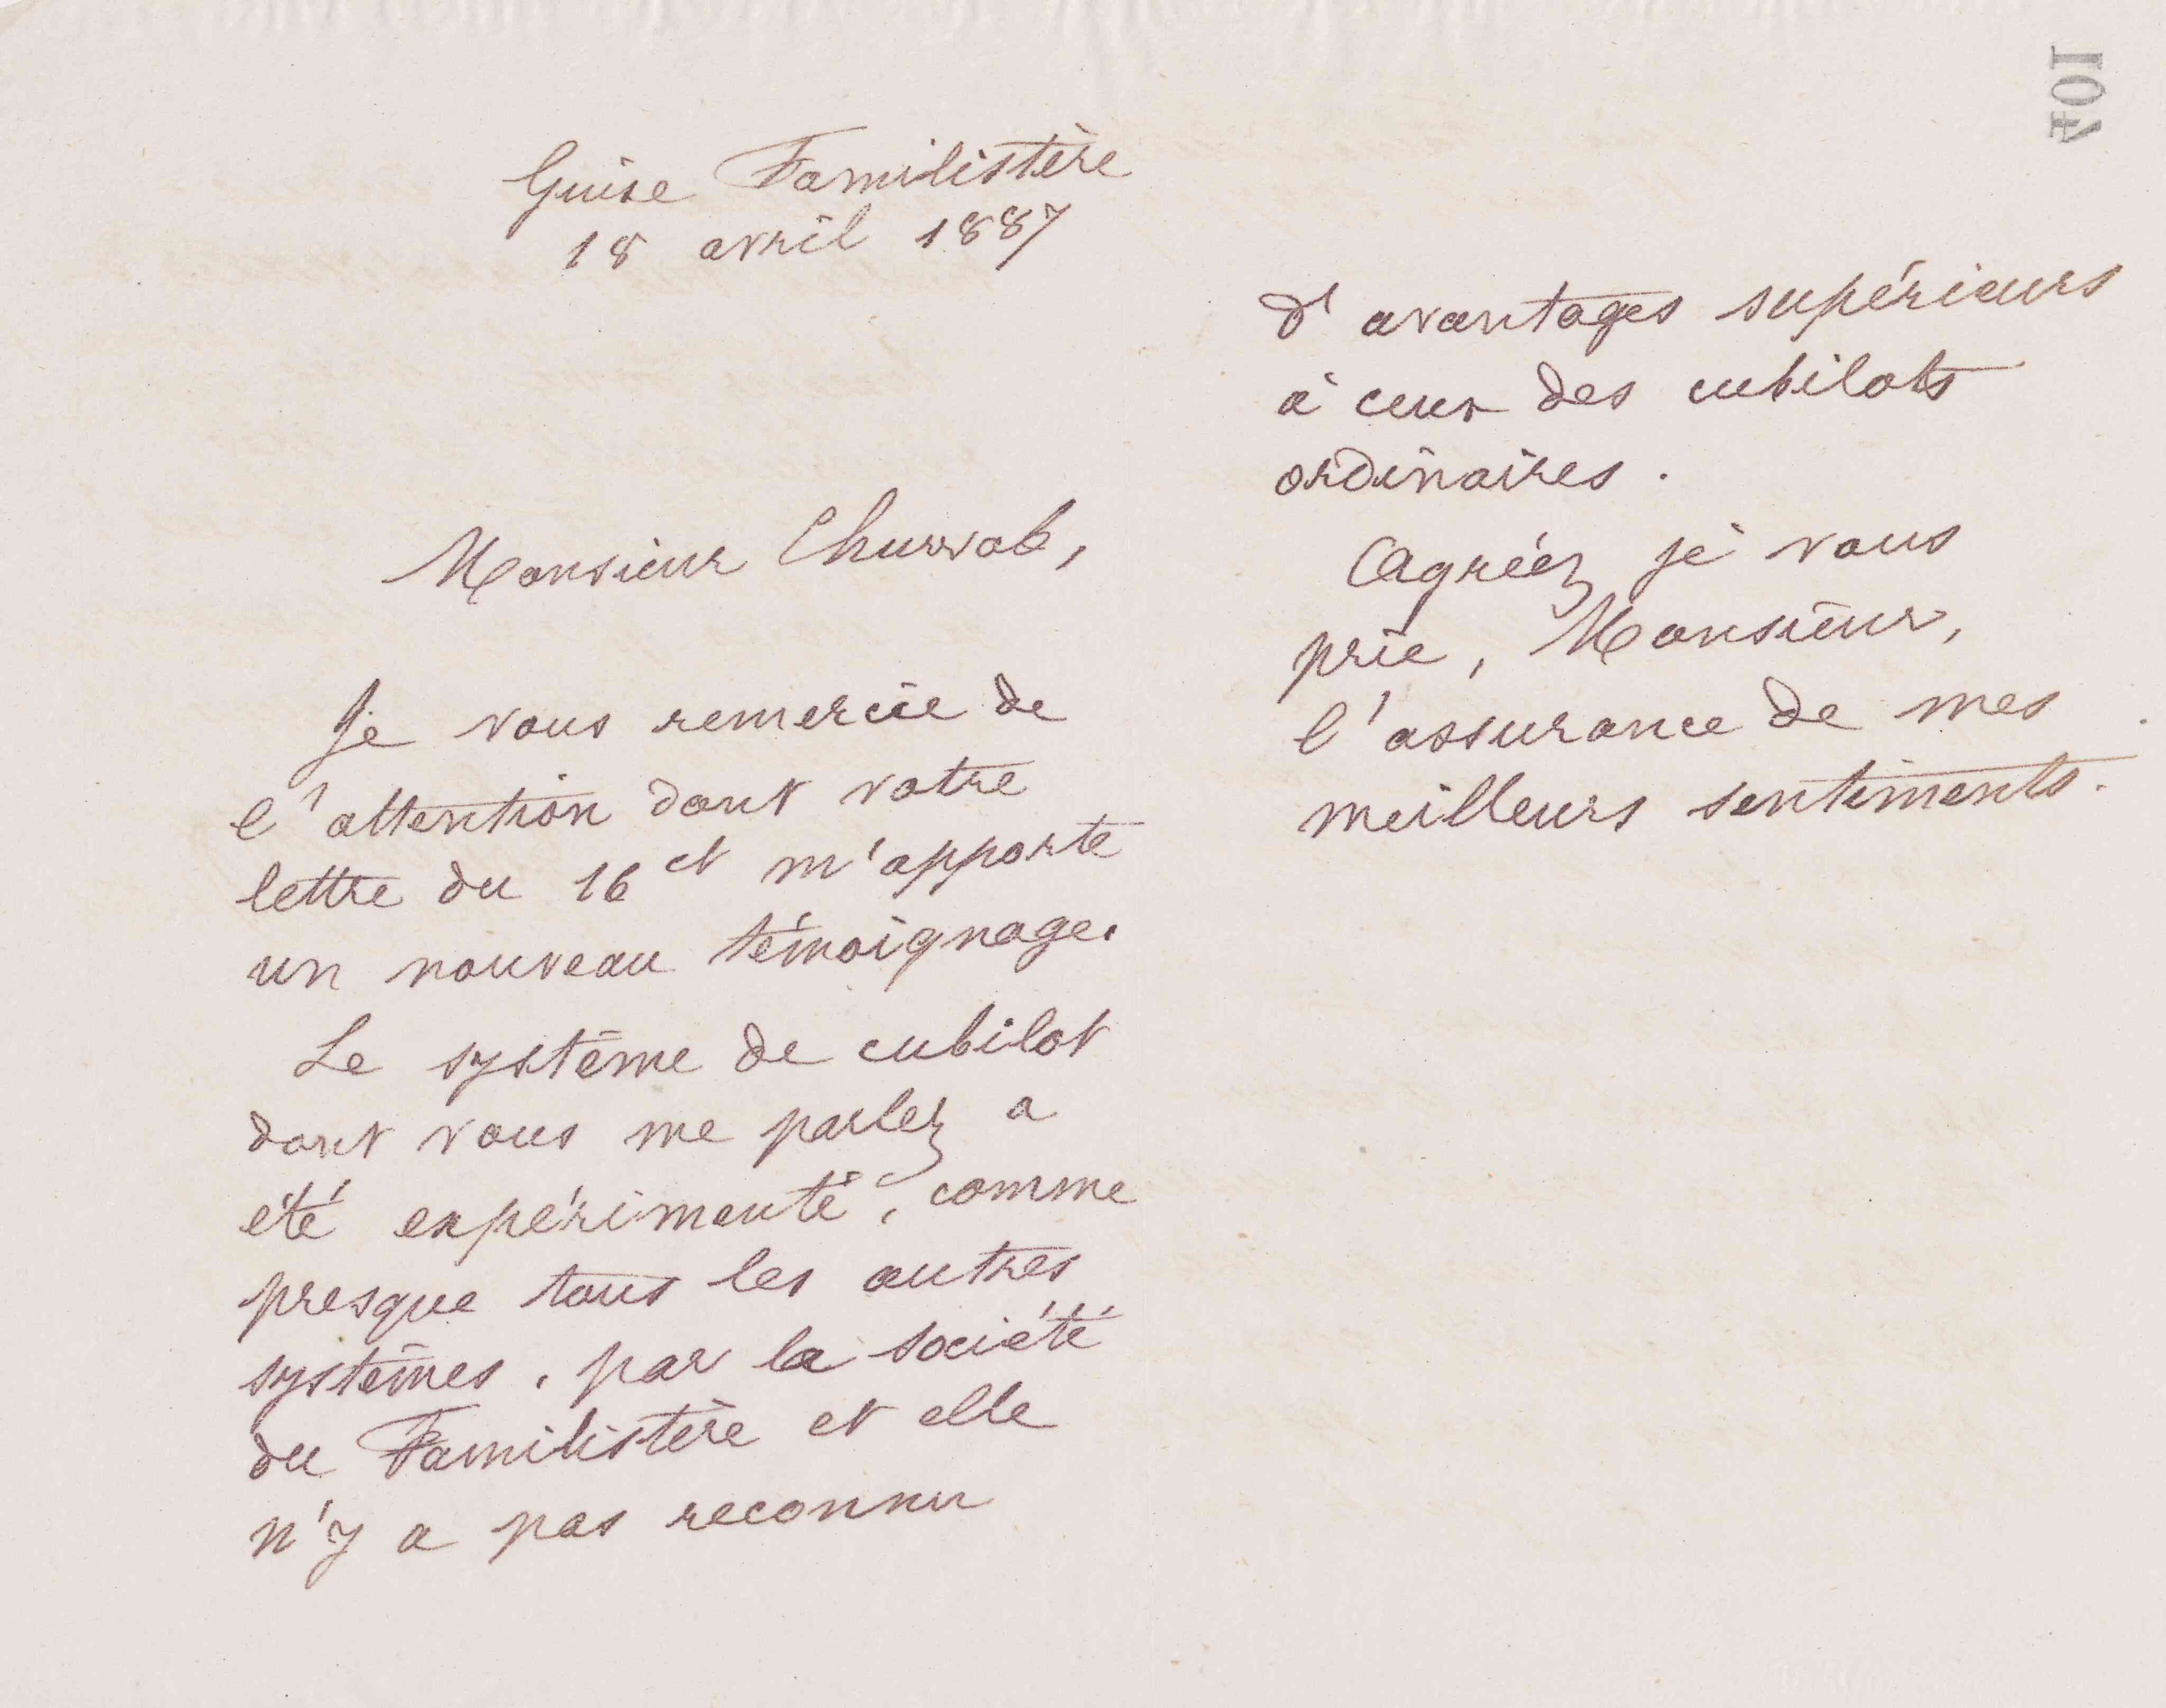 107
Guise Familistère
18 avril 1887
Monsieur
Je vous remercie de
l'attention dont votre
lettre du 16 ct m'apporte
un nouveau témoignage.
Le système de cubilot
dont vous me parlez a
été expérimenté, comme
presque tous les autres
systèmes, par la société
du Familistère et elle
n'y a pas reconnu
d'avantages supérieurs
à ceux des cubilots
ordinaires.
Agréez je vous
prie, Monsieur,
l'assurance de mes
meilleurs sentiments.